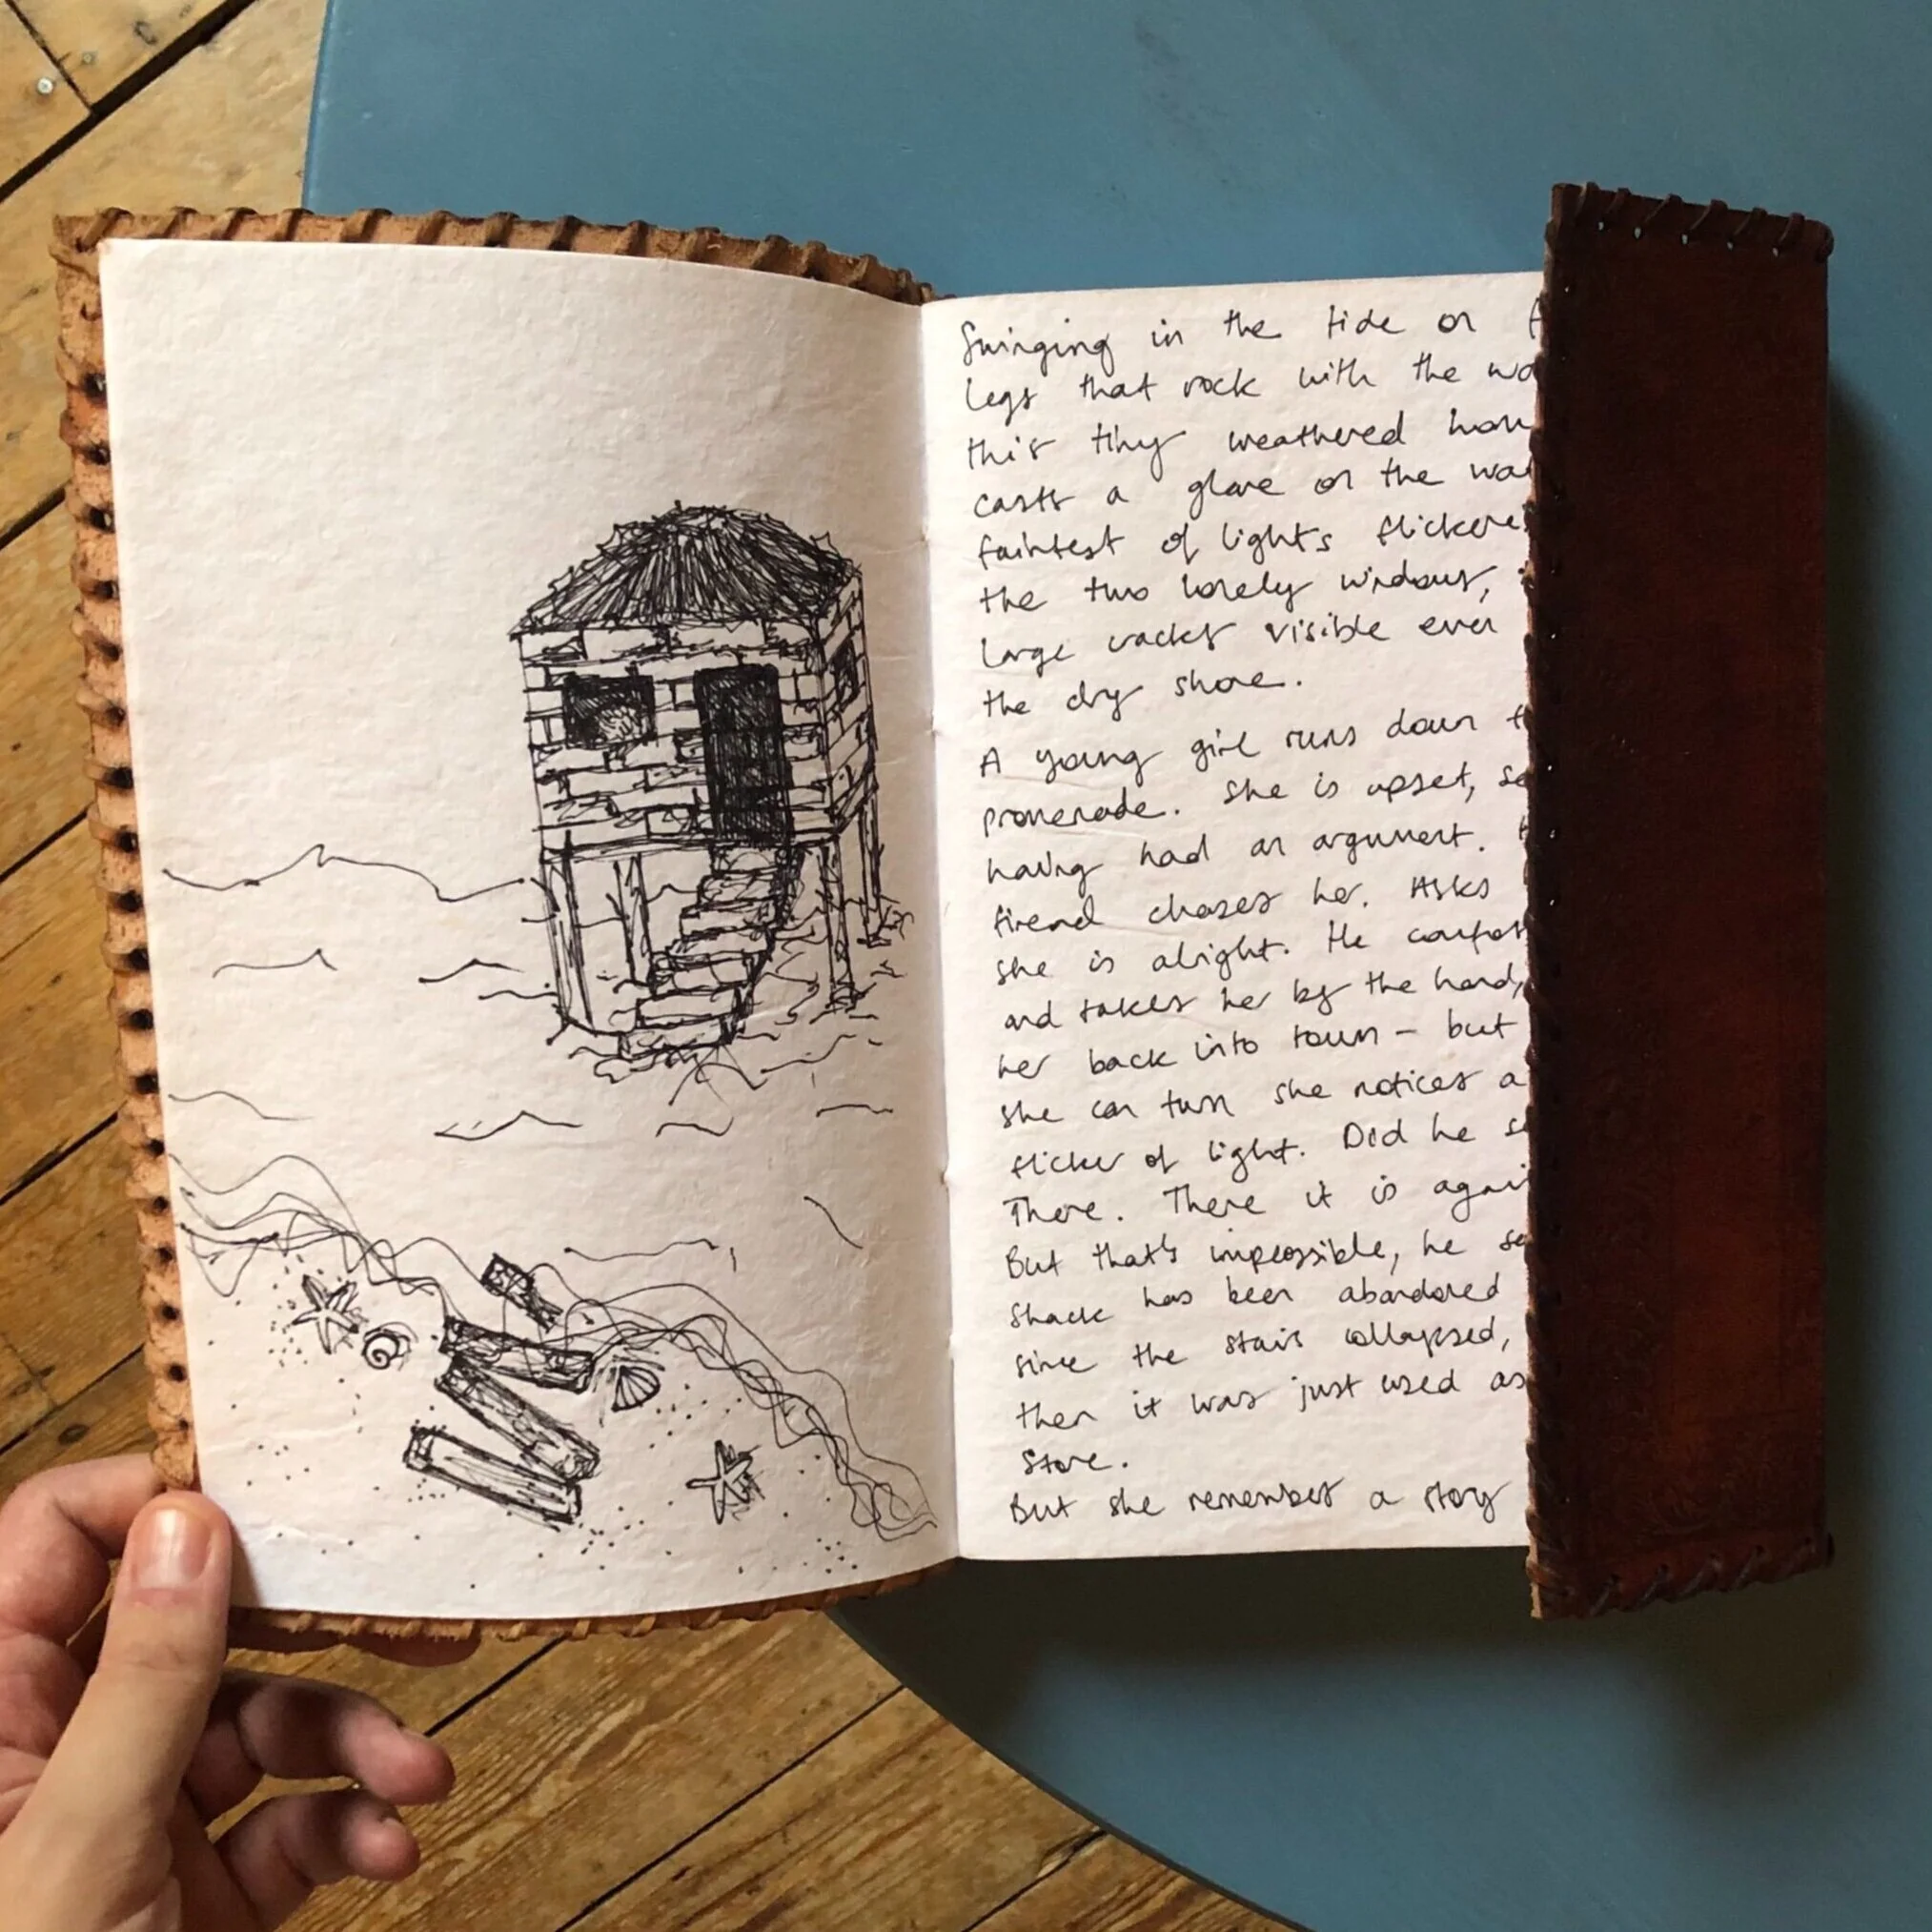 Swinging in the tide on
legs that rock with the
this tiny weathered
casts a glare on the
faintest of lights
the two lonely windows,
large cracks visible even
the dry shore.
A young girl runs down
promenade. She is upset,
having had an argument.
friend chases her. Asks
she is alright. He
and takes her by the hand,
her back into town – but
she can turn she notices a
flicker of light. Did he
There. There it is
But that's impossible, he
shack has been abandoned
since the stairs collapsed,
then it was just used as
Store.
But she remembers a story